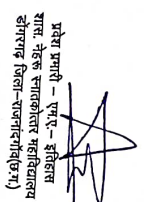 प्रवेश प्रभारी – एम.ए.– इतिहास
शास. नेहरू स्नातकोत्तर महाविद्यालय
डोंगरगढ़ जिला-राजनांदगाँव(छ.ग.)